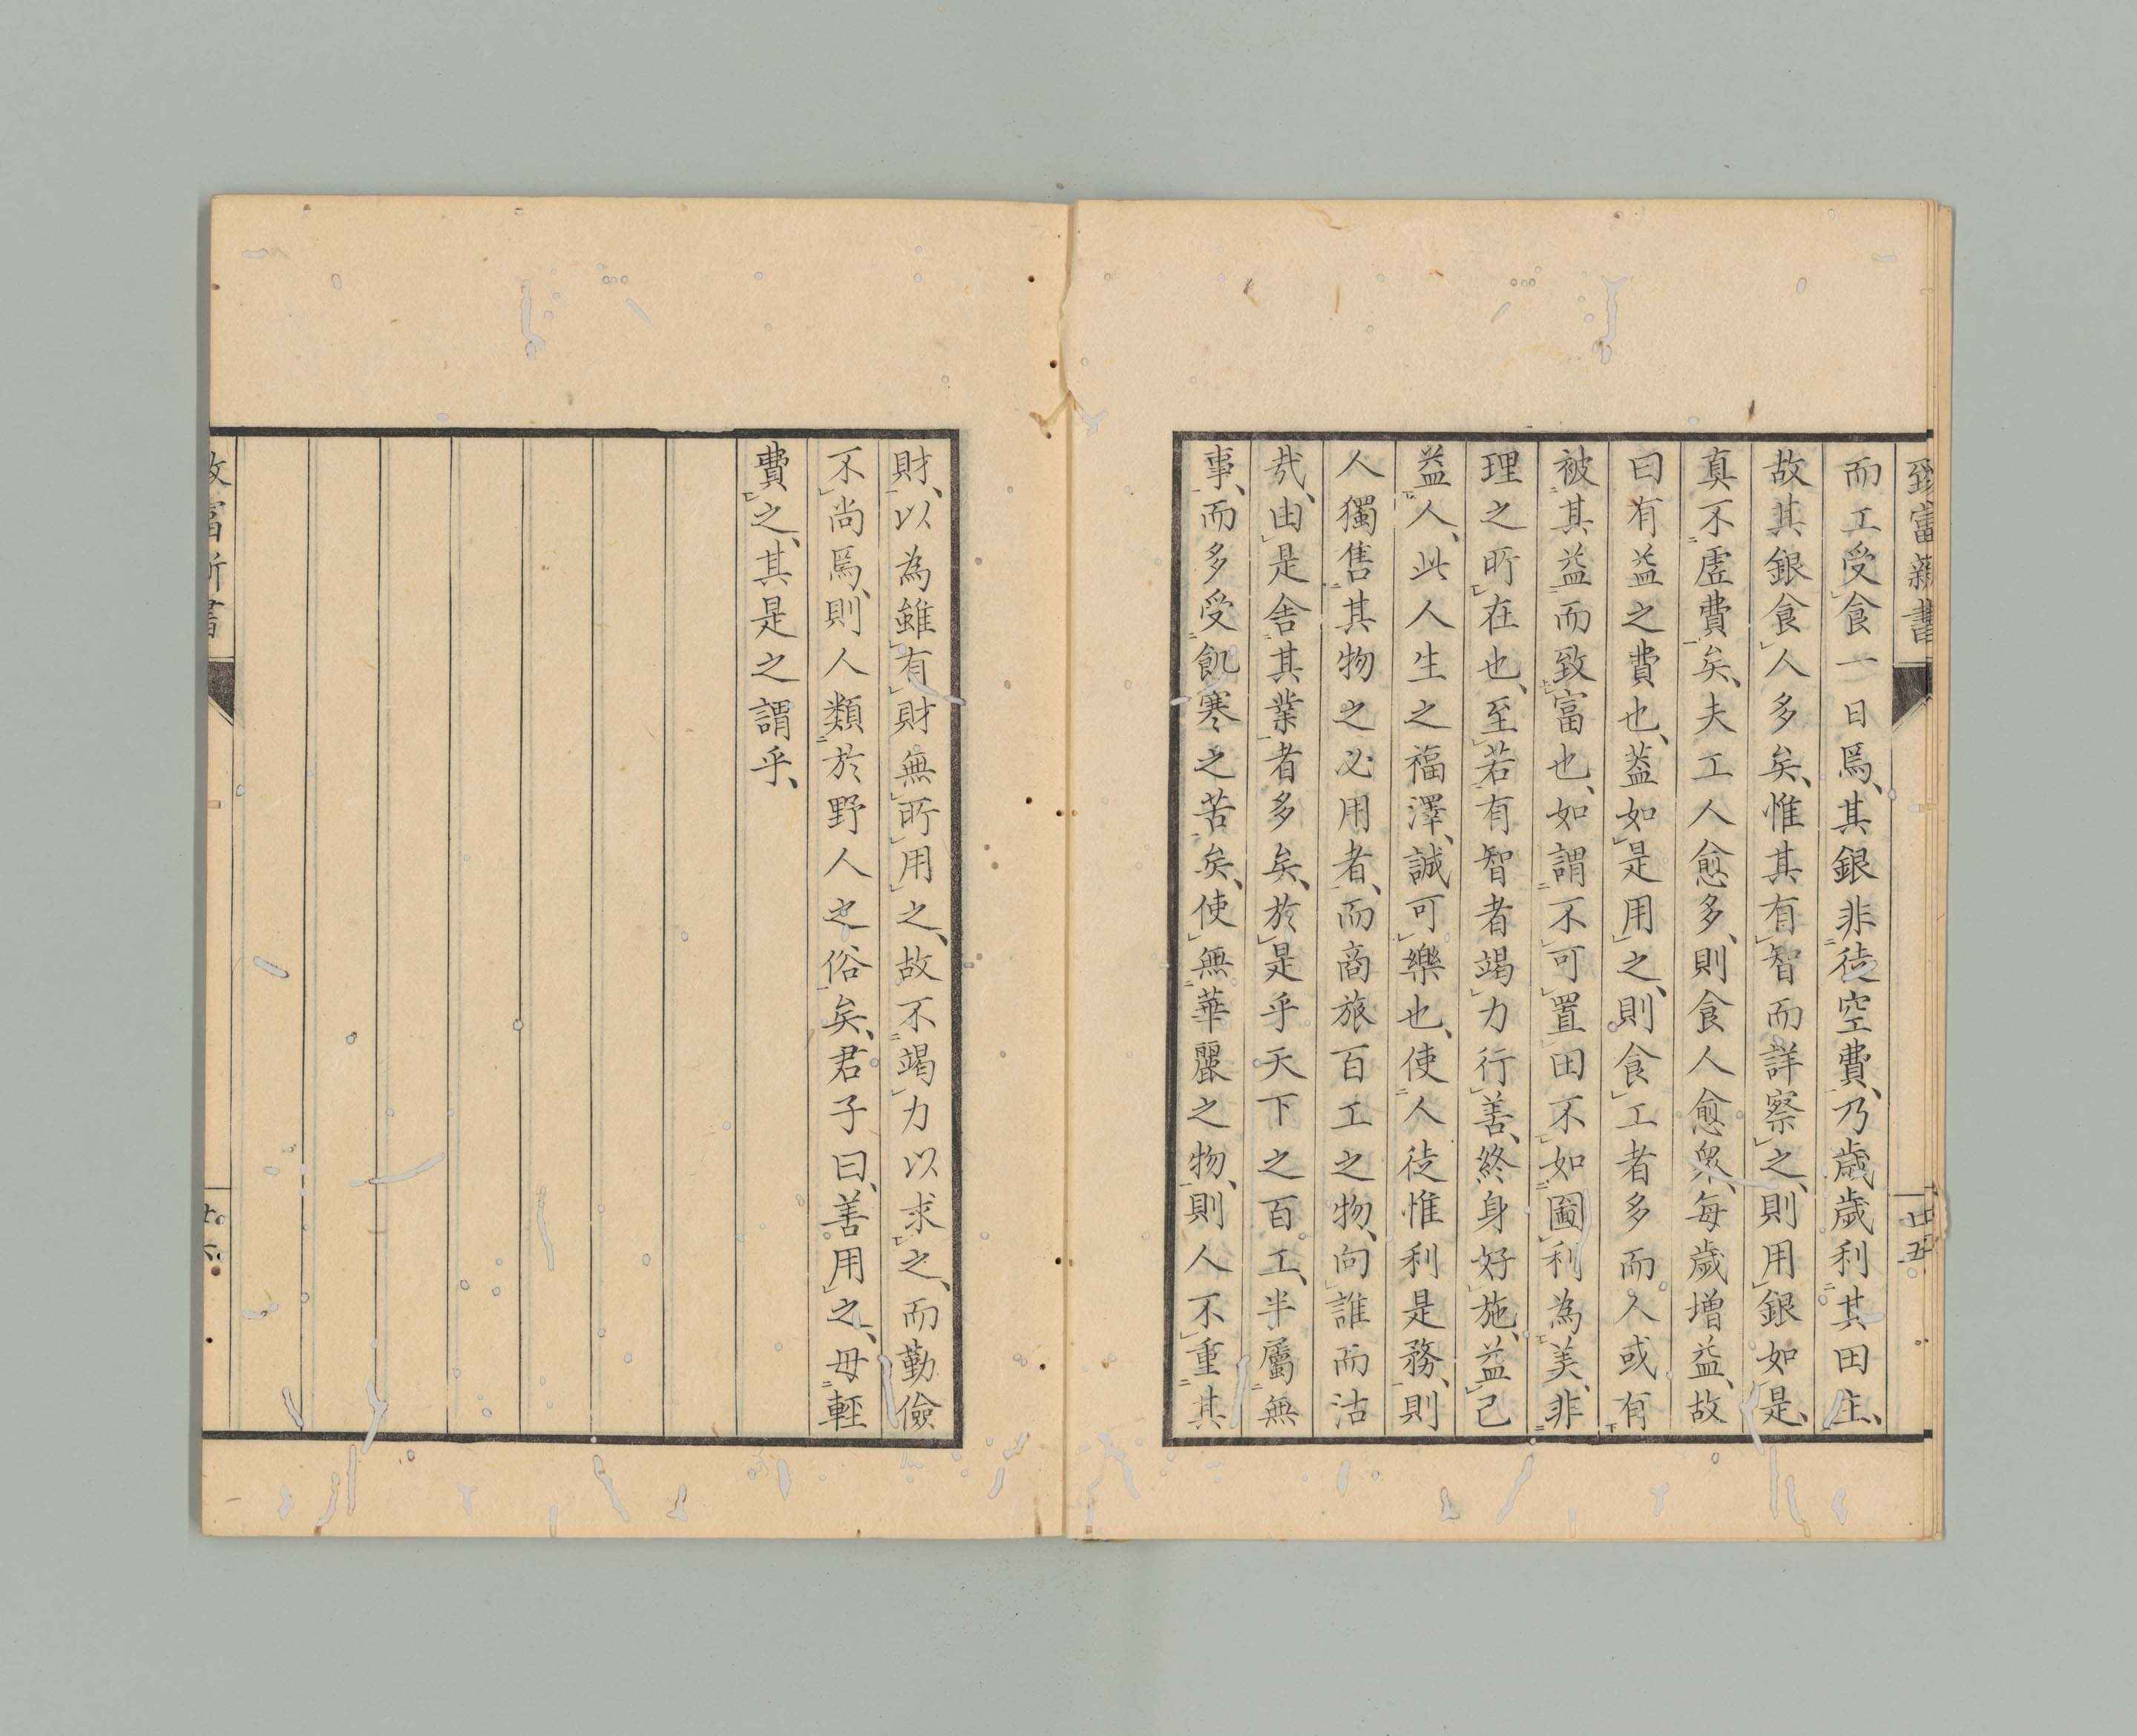 致富新書
廿五
而工受食一日焉、其銀非徒空費、乃歳歳利其田庄、
故其銀食人多矣、惟其有智而詳察之、則用銀如是、
真不虛費矣、夫工人愈多、則食人愈衆、每歲增益、故
曰有益之費也、葢如是用之、則食工者多而人或有
被其益而致富也、如謂不可置田不如圖利為美、非
理之所在也、至若有智者竭力行善、終身好施、益己
益人、此人生之福澤、誠可樂也、使人徒惟利是務、則
人獨售其物之必用者、而商旅百工之物、向誰而沽
哉、由是舍其業者多矣、於是乎天下之百工、半屬無
事、而多受飢寒之苦矣、使無華麗之物、則人不重其
財、以為雖有財無所用之、故不竭力以求之、而勤儉
不尚焉、則人類於野人之俗矣、君子曰、善用之、毋輕
費之、其是之謂乎、
致富新書
廿六